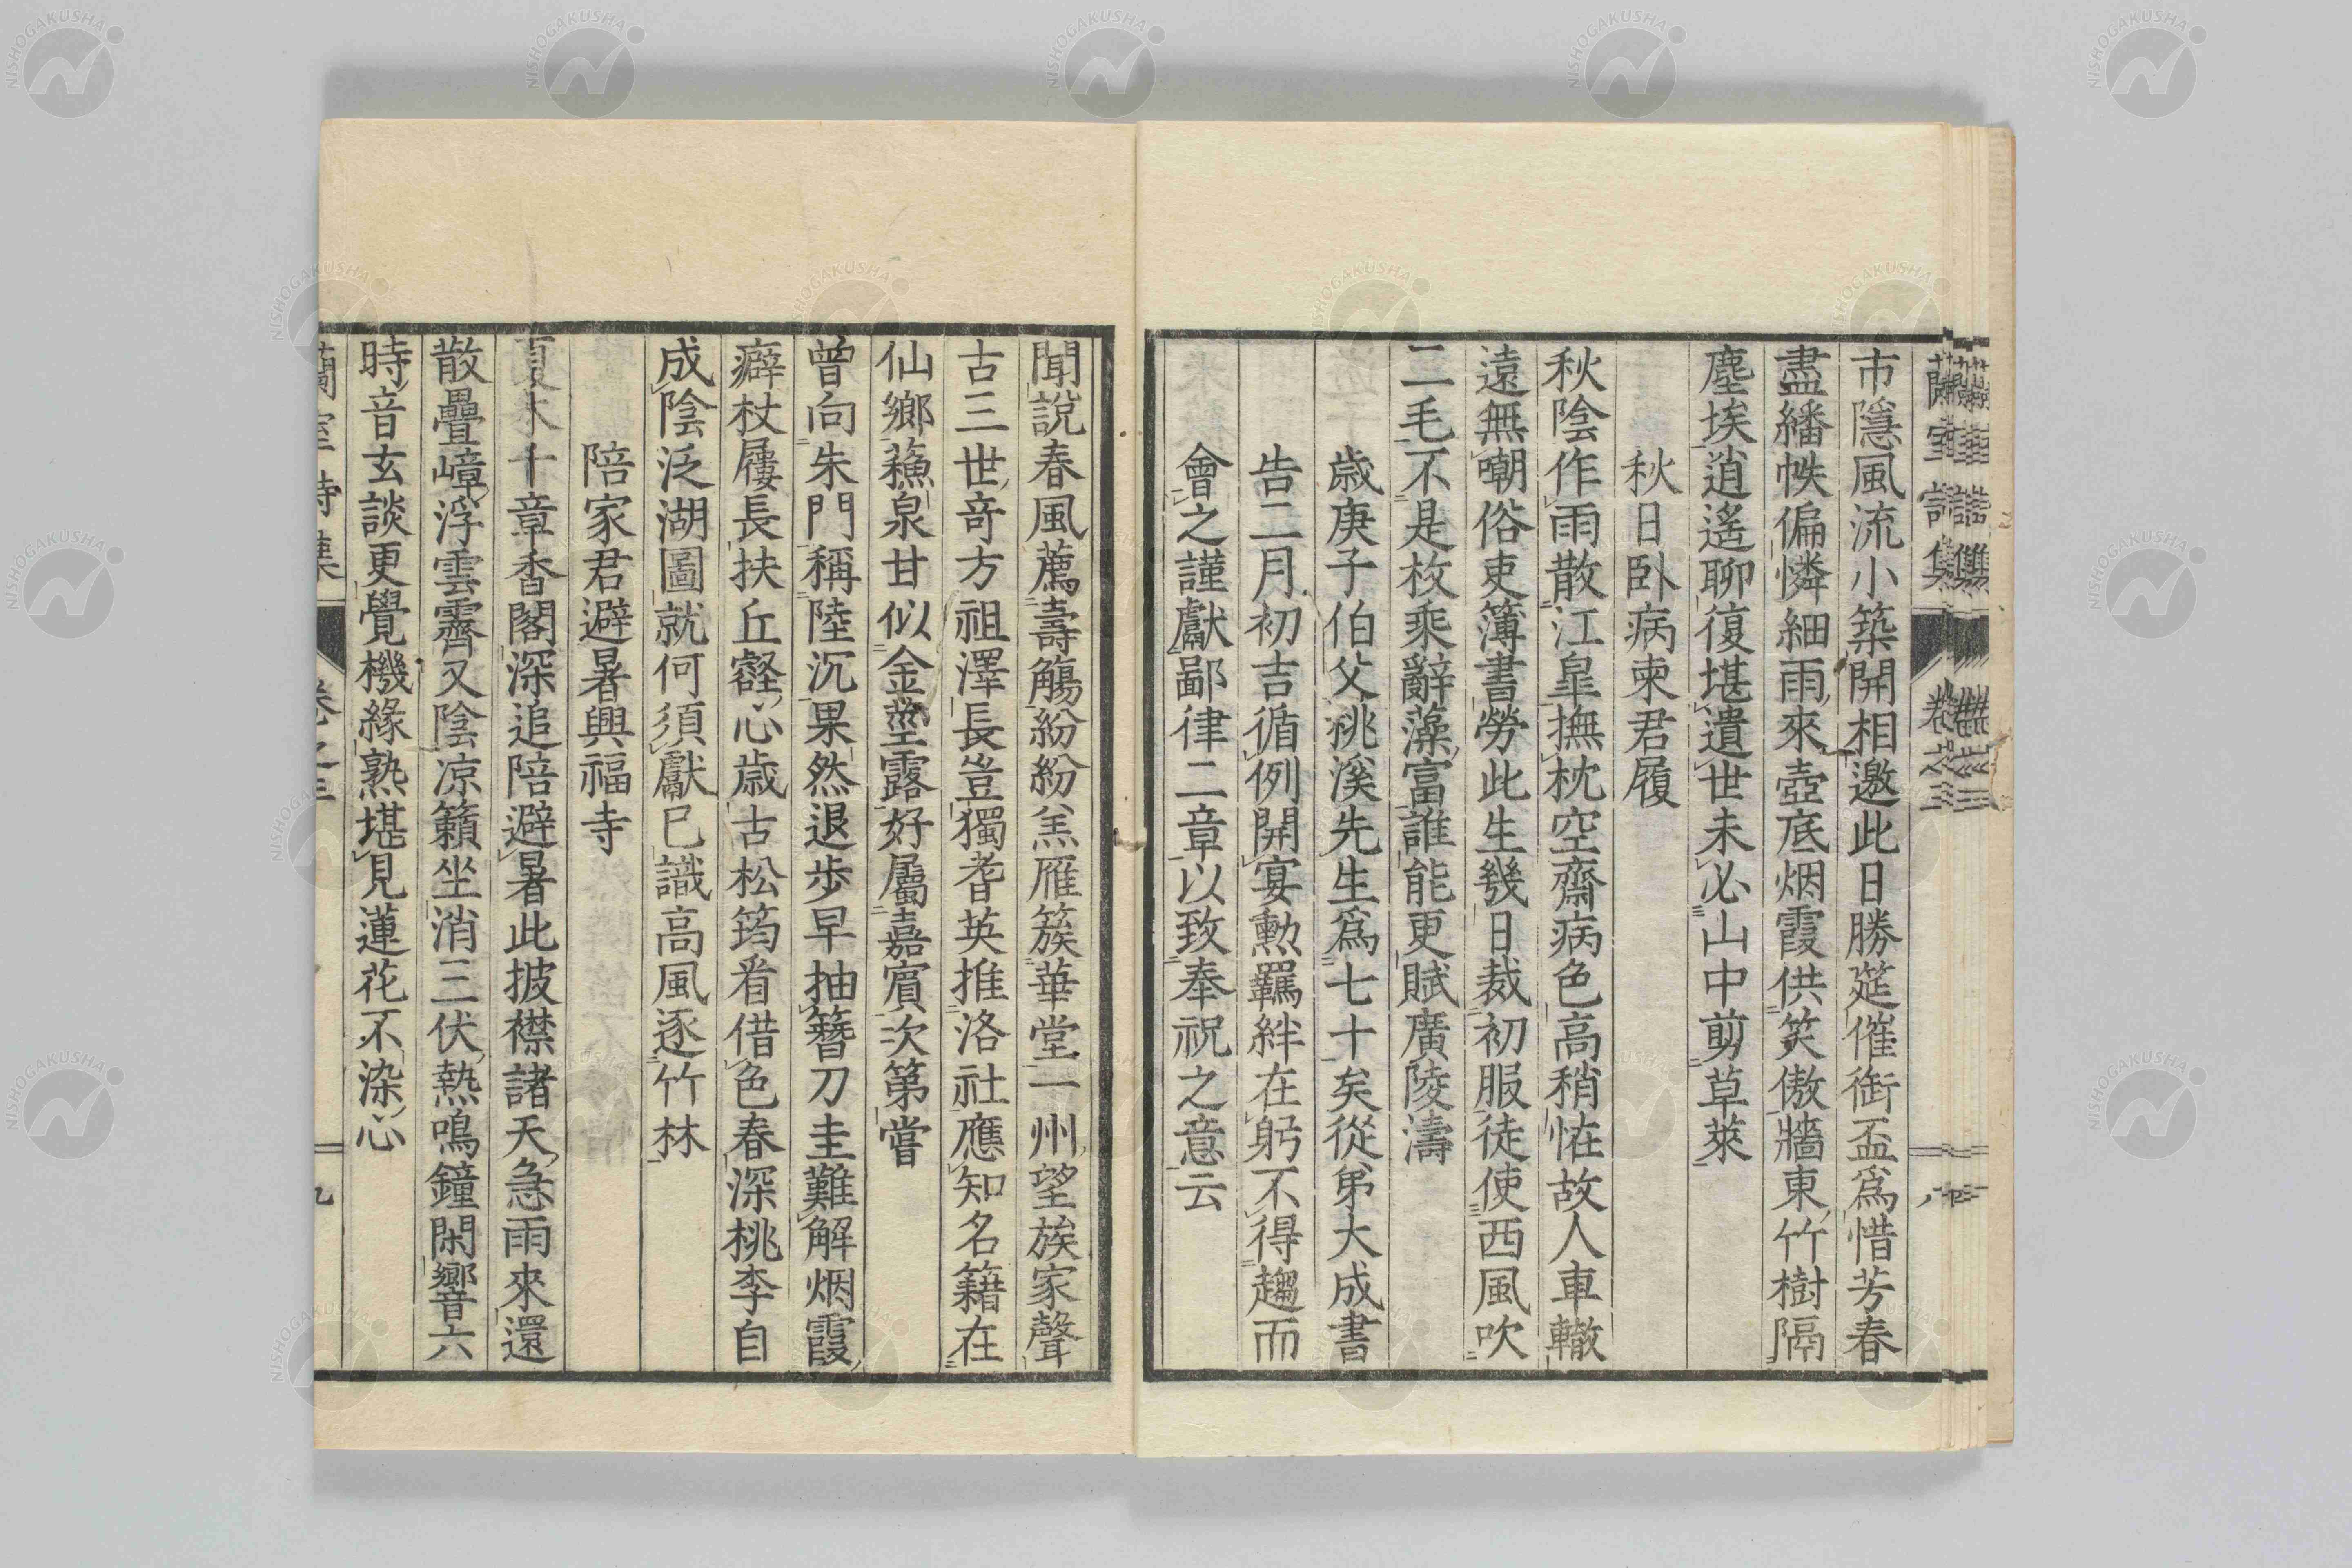 蘭室詩集 卷之三 八
市隱風流小築開相邀此日勝筵催銜盃爲惜芳春
盡繙帙偏憐細雨來壺底烟霞供笑傲牆東竹樹隔
塵埃逍遙聊復堪遺世未必山中剪草萊
秋日臥病柬君履
秋陰作雨散江皐撫枕空齋病色高稍恠故人車轍
遠無嘲俗吏簿書勞此生幾日裁初服徒使西風吹
二毛不是枚乘辭藻富誰能更賦廣陵濤
歲庚子伯父桃溪先生爲七十矣從弟大成書
告二月初吉循例開宴勲羈絆在躬不得趨而
會之謹獻鄙律二章以致奉祝之意云
聞說春風薦壽觴紛紛羔雁簇華堂一州望族家聲
古三世奇方祖澤長豈獨耆英推洛社應知名籍在
仙鄉蘓泉甘似金莖露好屬嘉賓次第嘗
曾向朱門稱陸沉果然退步早抽簪刀圭難解烟霞
癖杖屨長扶丘壑心歲古松筠看借色春深桃李自
成陰泛湖圖就何須獻已識高風逐竹林
陪家君避暑興福寺
夏木千章香閣深追陪避暑此披襟諸天急雨來還
散疊嶂浮雲霽又陰凉籟坐消三伏熱鳴鐘閑響六
時音玄談更覺機緣熟堪見蓮花不染心
蘭室詩集 卷之三 九
NISHOGAKUSHA